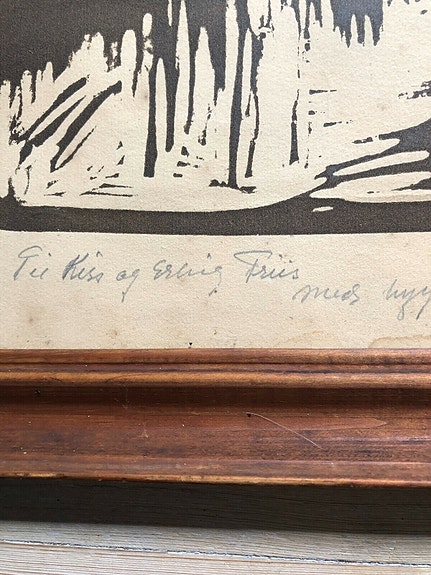 Til Kiss og Erling Friis
med